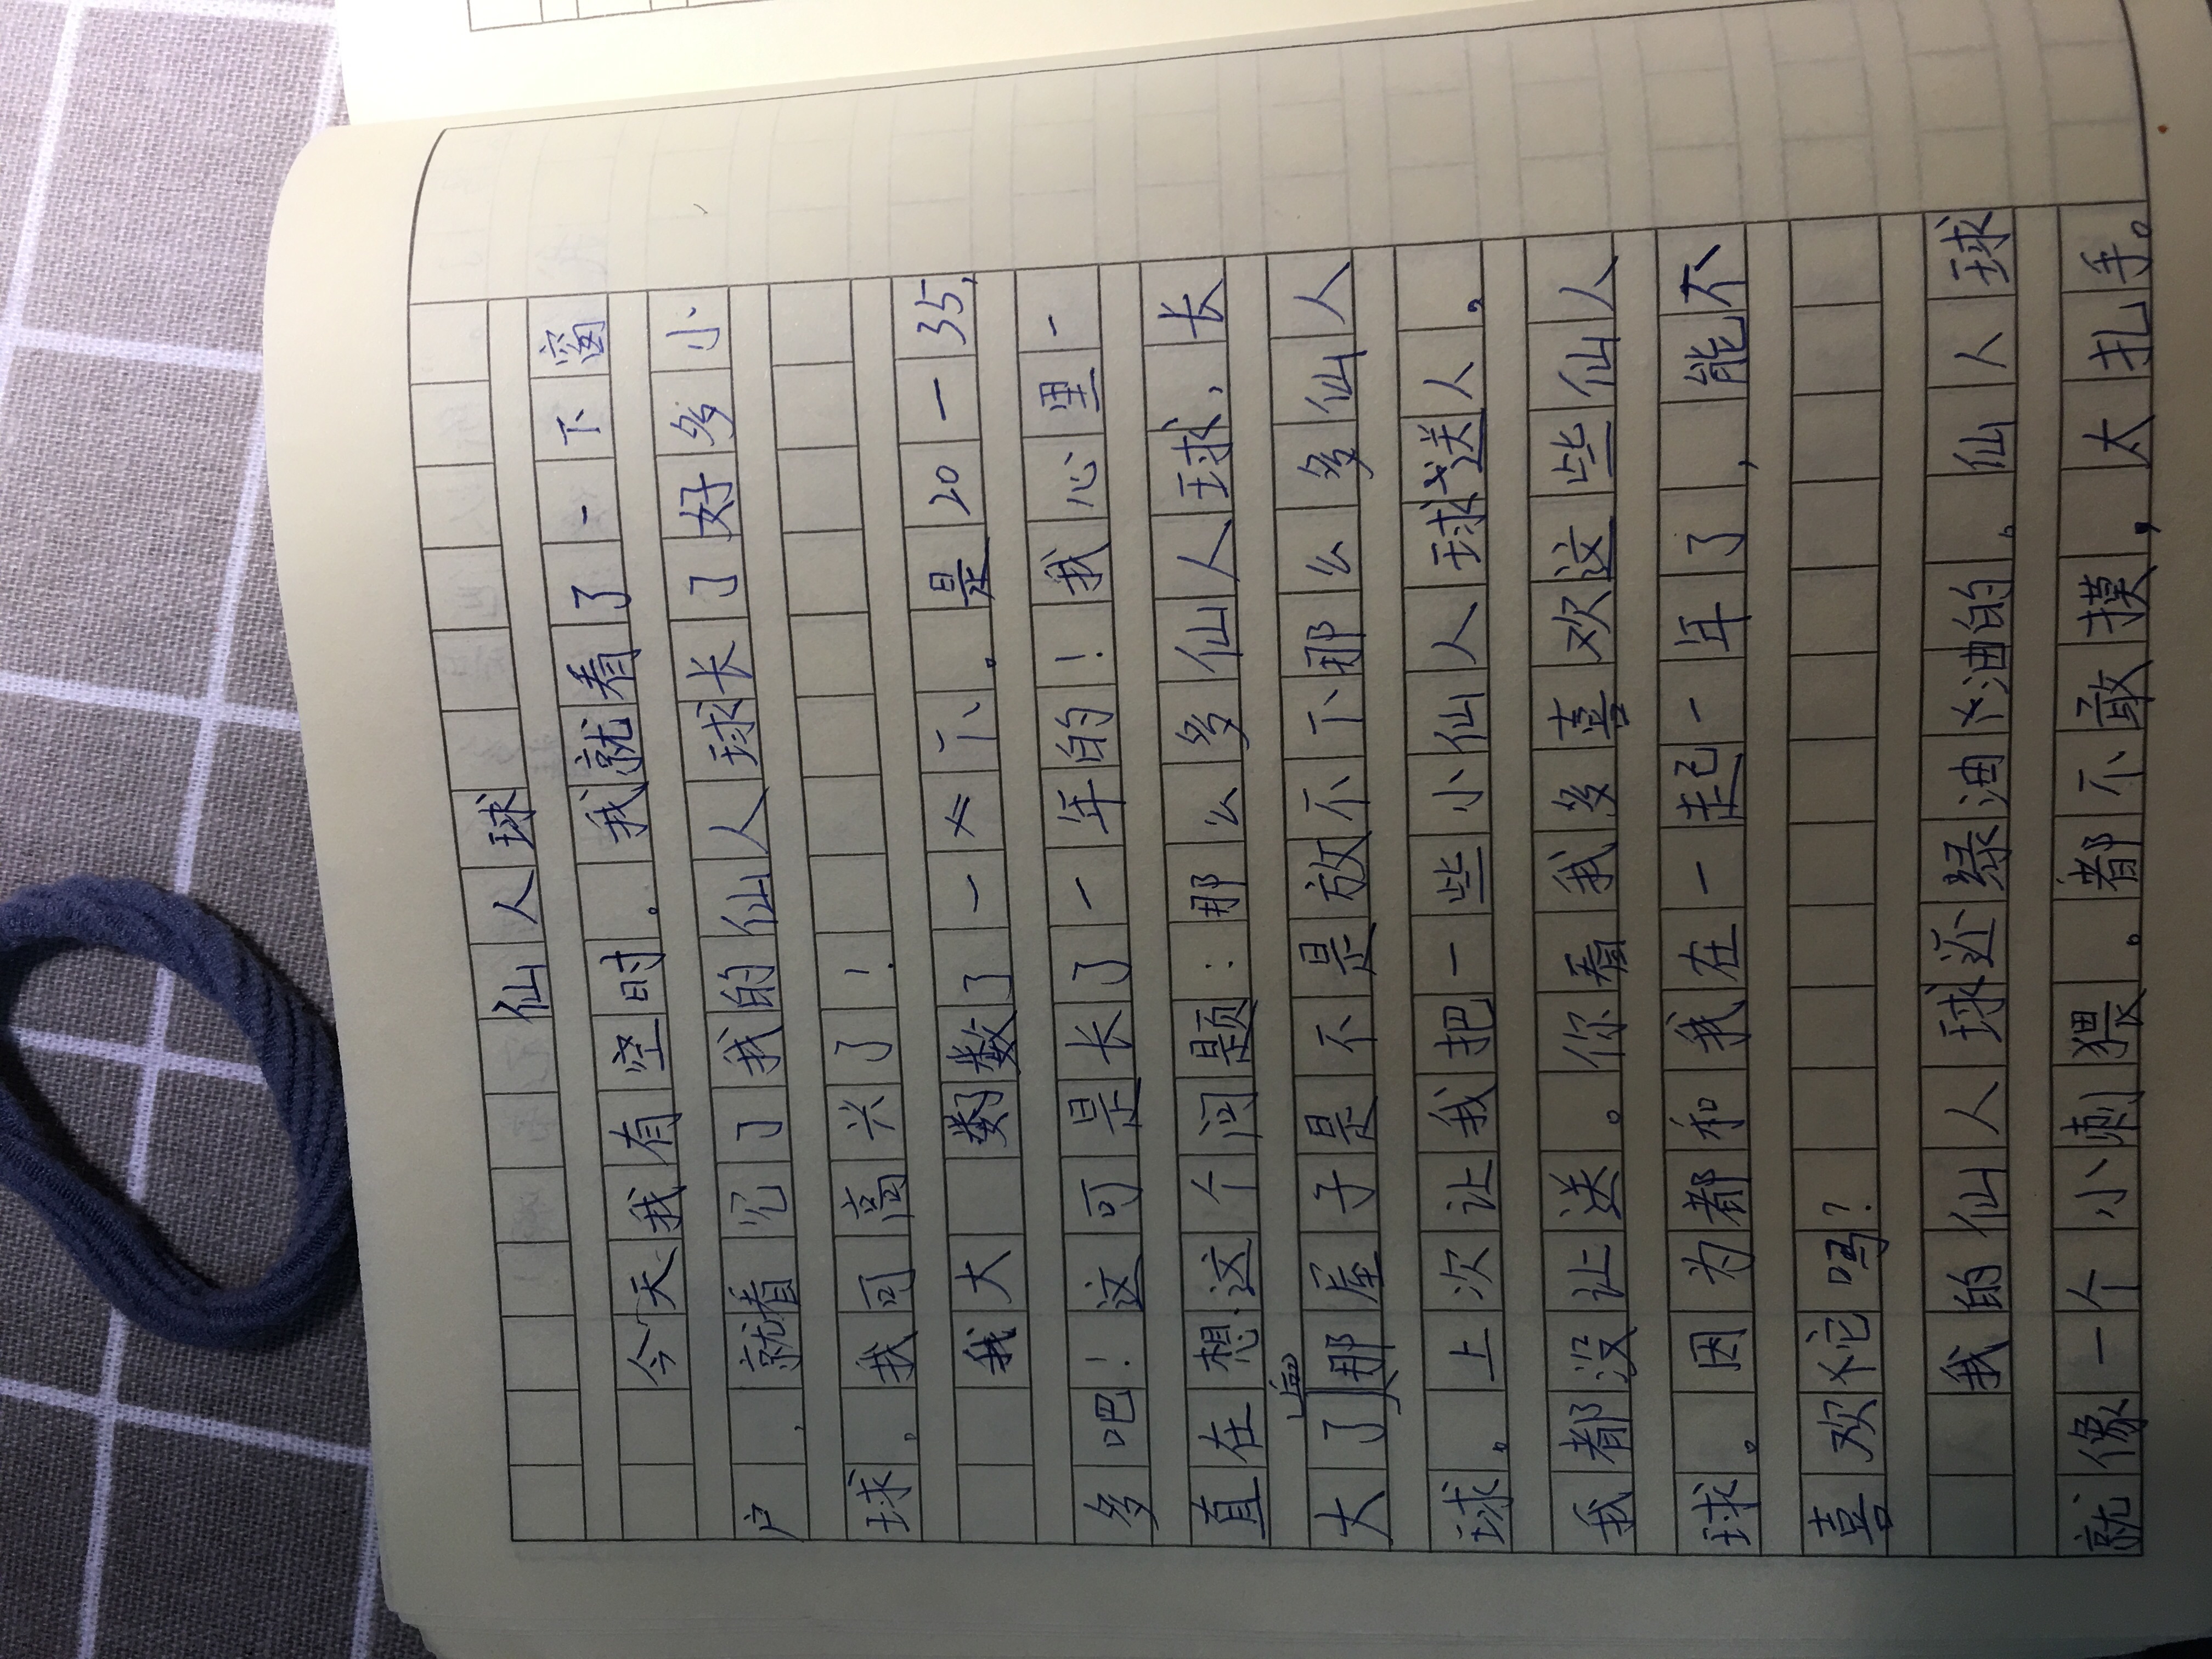 仙人球
今天我有空时。我就看了一下窗
户，就看见了我的仙人球长了好多小
球。我可高兴了！
我大数数了一下、。是20一35,
多吧！这可是长了一年的！我心里一
直在想这个问题：那么多仙人球，长
大了那屋子是不是放不下那么多仙人
球。上次让我把一些小仙人球送人。
我都没让送。你看我多喜欢这些仙人
球。因为都和我在一起一年了，能不
喜欢它吗？
我的仙人球还绿油油的。仙人球
就像一个小刺猬。都不敢摸，太扎手。